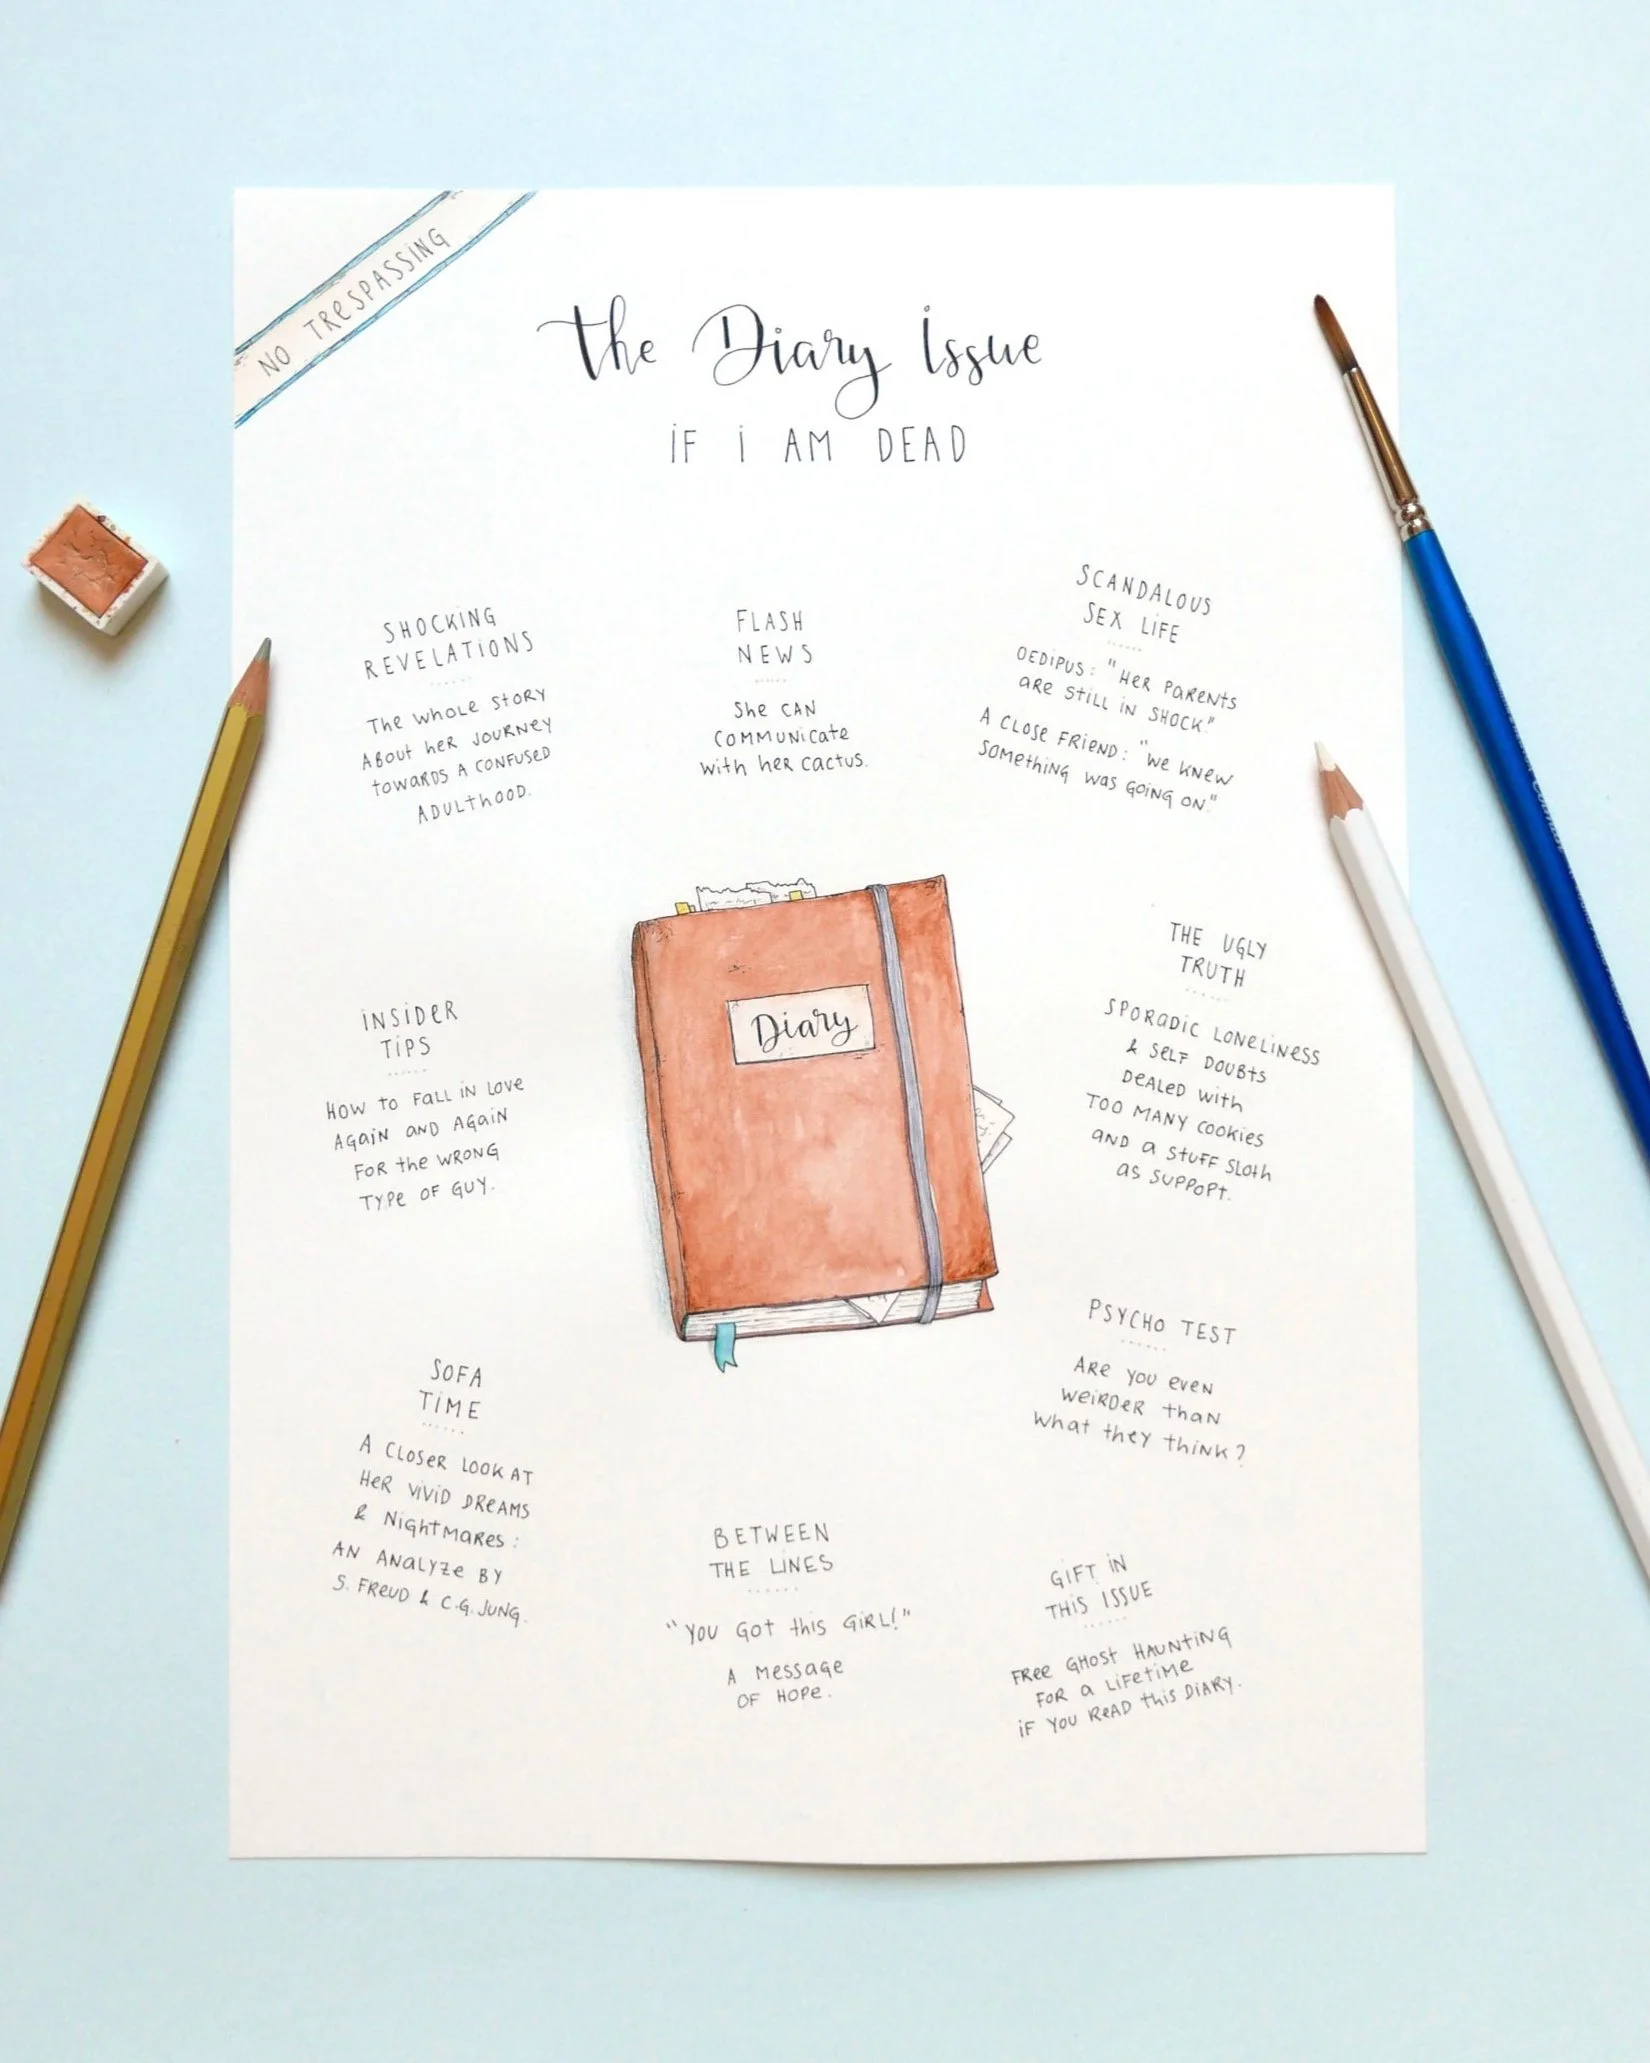 NO TRESPASSING
The Diary Issue
IF I AM DEAD
SHOCKING
REVELATIONS
The whole story
About her journey
towards a confused
Adulthood.
FLASH
NEWS
She can
communicate
with her cactus.
SCANDALOUS
SEX LIFE
Oedipus: "Her parents
are still in shock"
A close friend: "we knew
something was going on"
Diary
INSIDER
TIPS
How to fall in love
again and again
for the wrong
type of guy.
THE UGLY
TRUTH
Sporadic loneliness
& self doubts
dealed with
too many cookies
and a stuff sloth
as support.
SOFA
TIME
A closer look at
her vivid dreams
& nightmares:
an analyze by
S. Freud & C.G. Jung.
PSYCHO TEST
Are you even
weirder than
what they think?
BETWEEN
THE LINES
"You got this girl!"
A message
of hope.
GIFT IN
THIS ISSUE
Free ghost haunting
for a lifetime
if you read this diary.